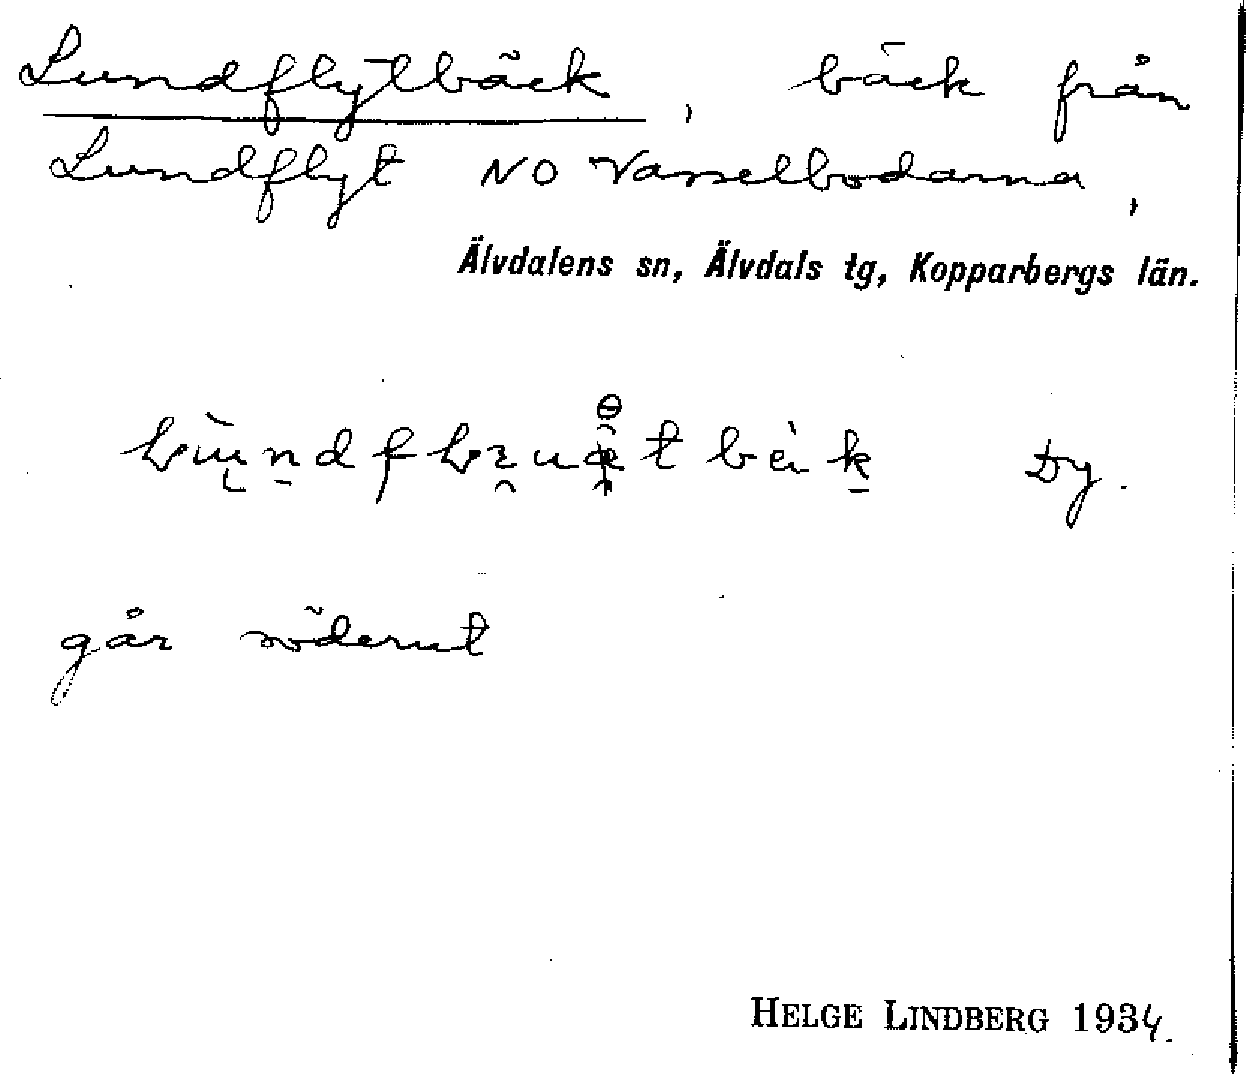 Lundflytbäck, bäck från
Lundflyt NO Vasselbodarna,
Älvdalens sn, Älvdals tg, Kopparbergs län.
Dy.
går söderut
HELGE LINDBERG 1934.